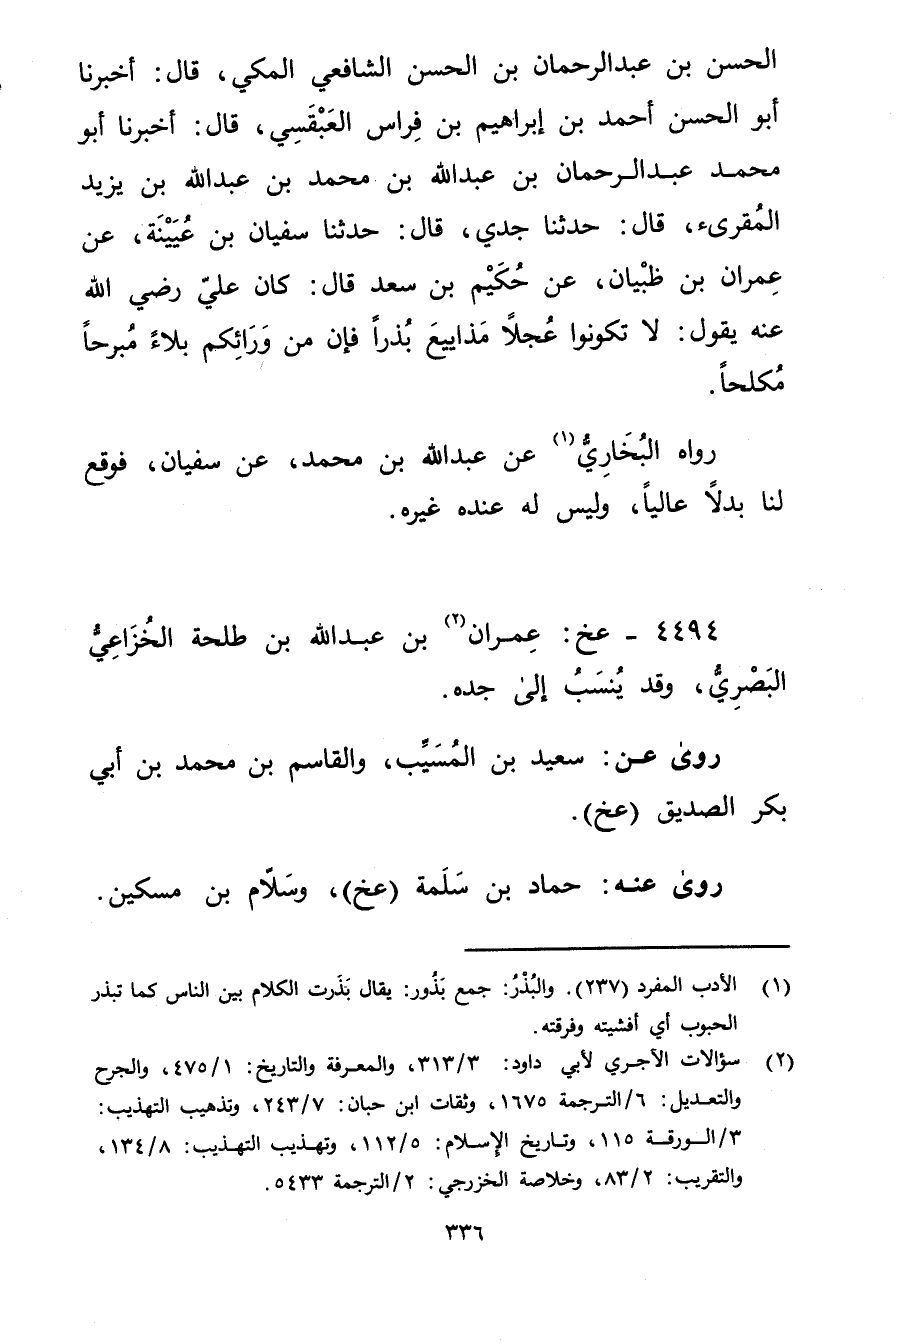 الحسن بن عبدالرحمان بن الحسن الشافعي المكي، قال: أخبرنا
أبو الحسن أحمد بن إبراهيم بن فِراس العَبْقَسِي، قال: أخبرنا أبو
محمـد عبـدالـرحمان بن عبدالله بن محمد بن عبدالله بن يزيد
المُقرىء، قال: حدثنا جدي، قال: حدثنا سفيان بن عُيَيْنَة، عن
عِمران بن ظبْيان، عن حُكَيْم بن سعد قال: كان عليّ رضي الله
عنه يقول: لا تكونوا عُجلاً مَذاييعَ بُذراً فإن من وَرَائِكم بلاءً مُبرحاً
مُكلحاً.
رواه البُخَارِيُّ(١) عن عبدالله بن محمد، عن سفيان، فوقع
لنا بدلاً عالياً، وليس له عنده غيره.
٤٤٩٤ - عخ: عِمـران(٢) بن عبـدالله بن طلحة الخُزَاعِيُّ
البَصْرِيُّ، وقد يُنسَبُ إلىٰ جده.
روىٰ عـن: سعيد بن المُسَيِّب، والقاسم بن محمد بن أبي
بكر الصديق (عخ).
روىٰ عنـه: حماد بن سَلَمة (عخ)، وسَلَّام بن مسكين.
(١) الأدب المفرد (٢٣٧). والبُذْرُ: جمع بَذُور: يقال بَذَرت الكلام بين الناس كما تبذر
الحبوب أي أفشيته وفرقته.
(٢) سؤالات الآجري لأبي داود: ٣١٣/٣، والمعـرفة والتاريخ: ٤٧٥/١، والجرح
والتعـديل: ٦/التـرجمة ١٦٧٥، وثقات ابن حبان: ٢٤٣/٧، وتذهيب التهذيب:
٣/الـورقـة ١١٥، وتـاريخ الإِسـلام: ١١٢/٥، وتهـذيب التهـذيب: ١٣٤/٨،
والتقريب: ٨٣/٢، وخلاصة الخزرجي: ٢/الترجمة ٥٤٣٣.
٣٣٦